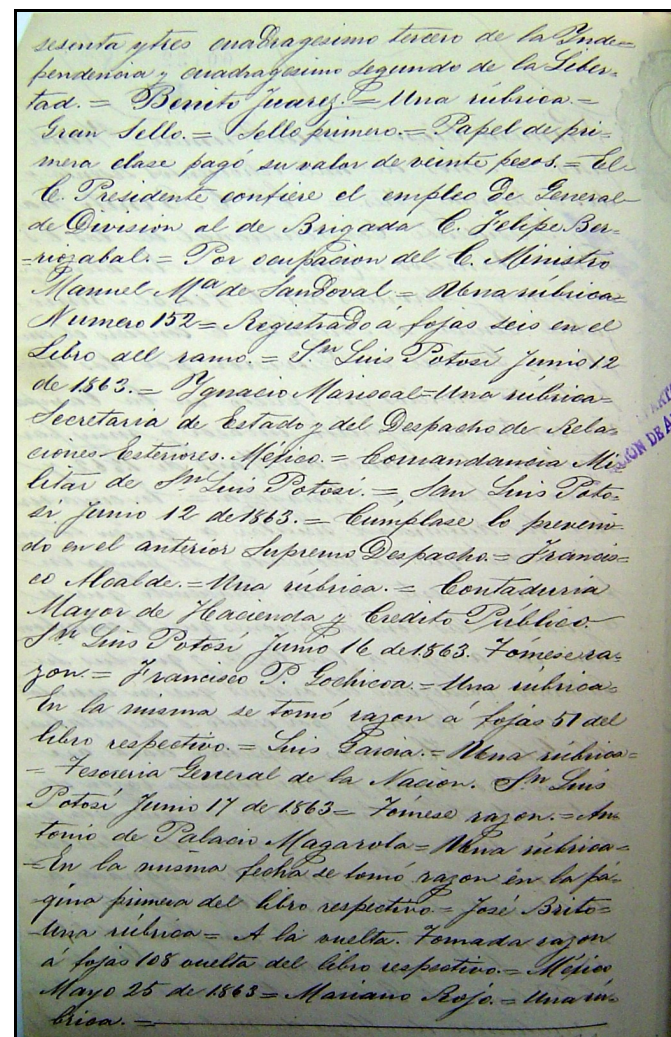 sesenta y tres cuadragesimo tercero de la Inde=
pendencia y cuadragesimo segundo de la Liber=
tad. = Benito Juarez. = Una rúbrica. =
Gran Sello. = Sello primero. = Papel de pri=
mera clase pago su valor de veinte pesos. = El
C. Presidente confiere el empleo de General
de Division al de Brigada C. Felipe Ber=
=riozabal. = Por ocupacion del C. Ministro
Manuel Mª de Sandoval = Una rúbrica =
Numero 152 = Registrado á fojas seis en el
Libro del ramo. = Sn Luis Potosí Junio 12
de 1863. = Ygnacio Mariscal = Una rúbrica =
Secretaria de Estado y del Despacho de Rela=
ciones Esteriores. Méjico. = Comandancia Mi=
litar de Sn Luis Potosí. = San Luis Poto=
sí Junio 12 de 1863. = Cúmplase lo preveni=
do en el anterior Supremo Despacho. = Francis=
co Alcalde. = Una rúbrica. = Contaduria
Mayor de Hacienda y Credito Público.
Sn Luis Potosí Junio 16 de 1863. Tómese ra=
zon. = Francisco P. Gochicoa. = Una rúbrica =
En la misma se tomó razon á fojas 51 del
libro respectivo. = Luis Garcia. = Una rúbrica =
= Tesoreria General de la Nacion. Sn Luis
Potosí Junio 17 de 1863 = Tómese razon. = An=
tonio de Palacio Magarola = Una rúbrica =
= En la misma fecha se tomó razon en la pá=
gina primera del libro respectivo = José Brito =
Una rúbrica = A la vuelta. Tomada razon
á fojas 108 vuelta del libro respectivo. = Méjico
Mayo 25 de 1863 = Mariano Rojo. = Una rú=
brica. =